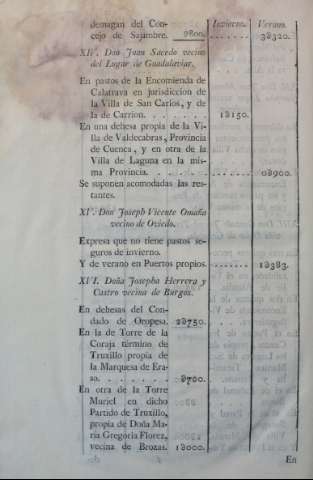 Invierno. Verano.
demagan del Con-
cejo de Sajambre. 2800. 38320.
XIV. Don Juan Sacedo vecino
del Lugar de Guadalaviar.
En pastos de la Encomienda de
Calatrava en jurisdiccion de
la Villa de San Carlos, y de
la de Carrion. 18150.
En una dehesa propia de la Vi-
lla de Valdecabras, Provincia
de Cuenca, y en otra de la
Villa de Laguna en la mis-
ma Provincia. 08900.
Se suponen acomodadas las res-
tantes.
XV. Don Joseph Vicente Omaña
vecino de Oviedo.
Expresa que no tiene pastos se-
guros de invierno.
Y de verano en Puertos propios. 18383.
XVI. Doña Josepha Herrera y
Castro vecina de Burgos.
En dehesas del Con-
dado de Oropesa. 28750.
En la de Torre de la
Coraja término de
Truxillo propia de
la Marquesa de Era-
so. 8700.
En otra de la Torre
Muriel en dicho
Partido de Truxillo,
propia de Doña Ma-
ria Gregoria Florez,
vecina de Brozas. 18000.
En